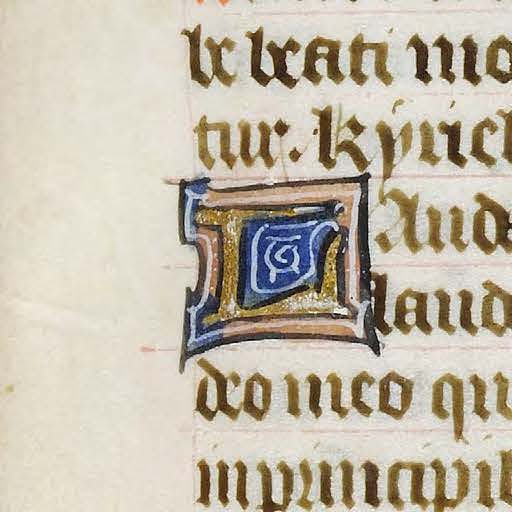 be beati mo
tur. kyriel
LAuda
laud
deo meo qu
in principib